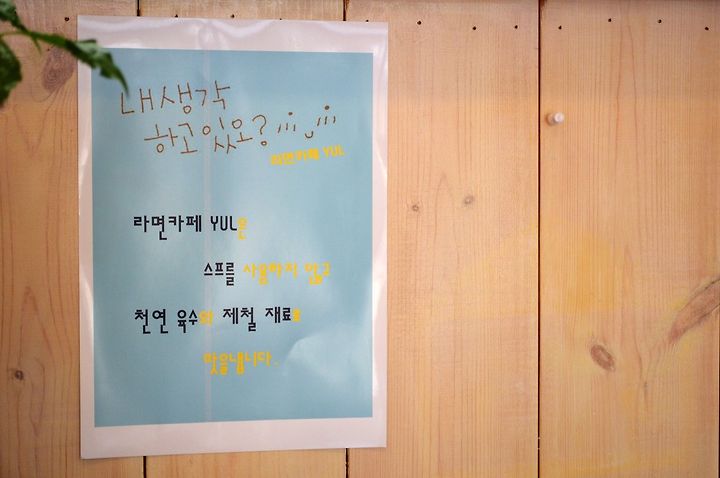 내생각
하고있오?
라면카페 YUL
라면카페 YUL은
스프를 사용하지 않고
천연 육수와 제철 재료로
맛을냅니다.